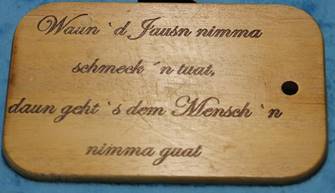 Waun`d Jausn nimma
schmeck´n tuat,
daun geht`s dem Mensch`n
nimma guat